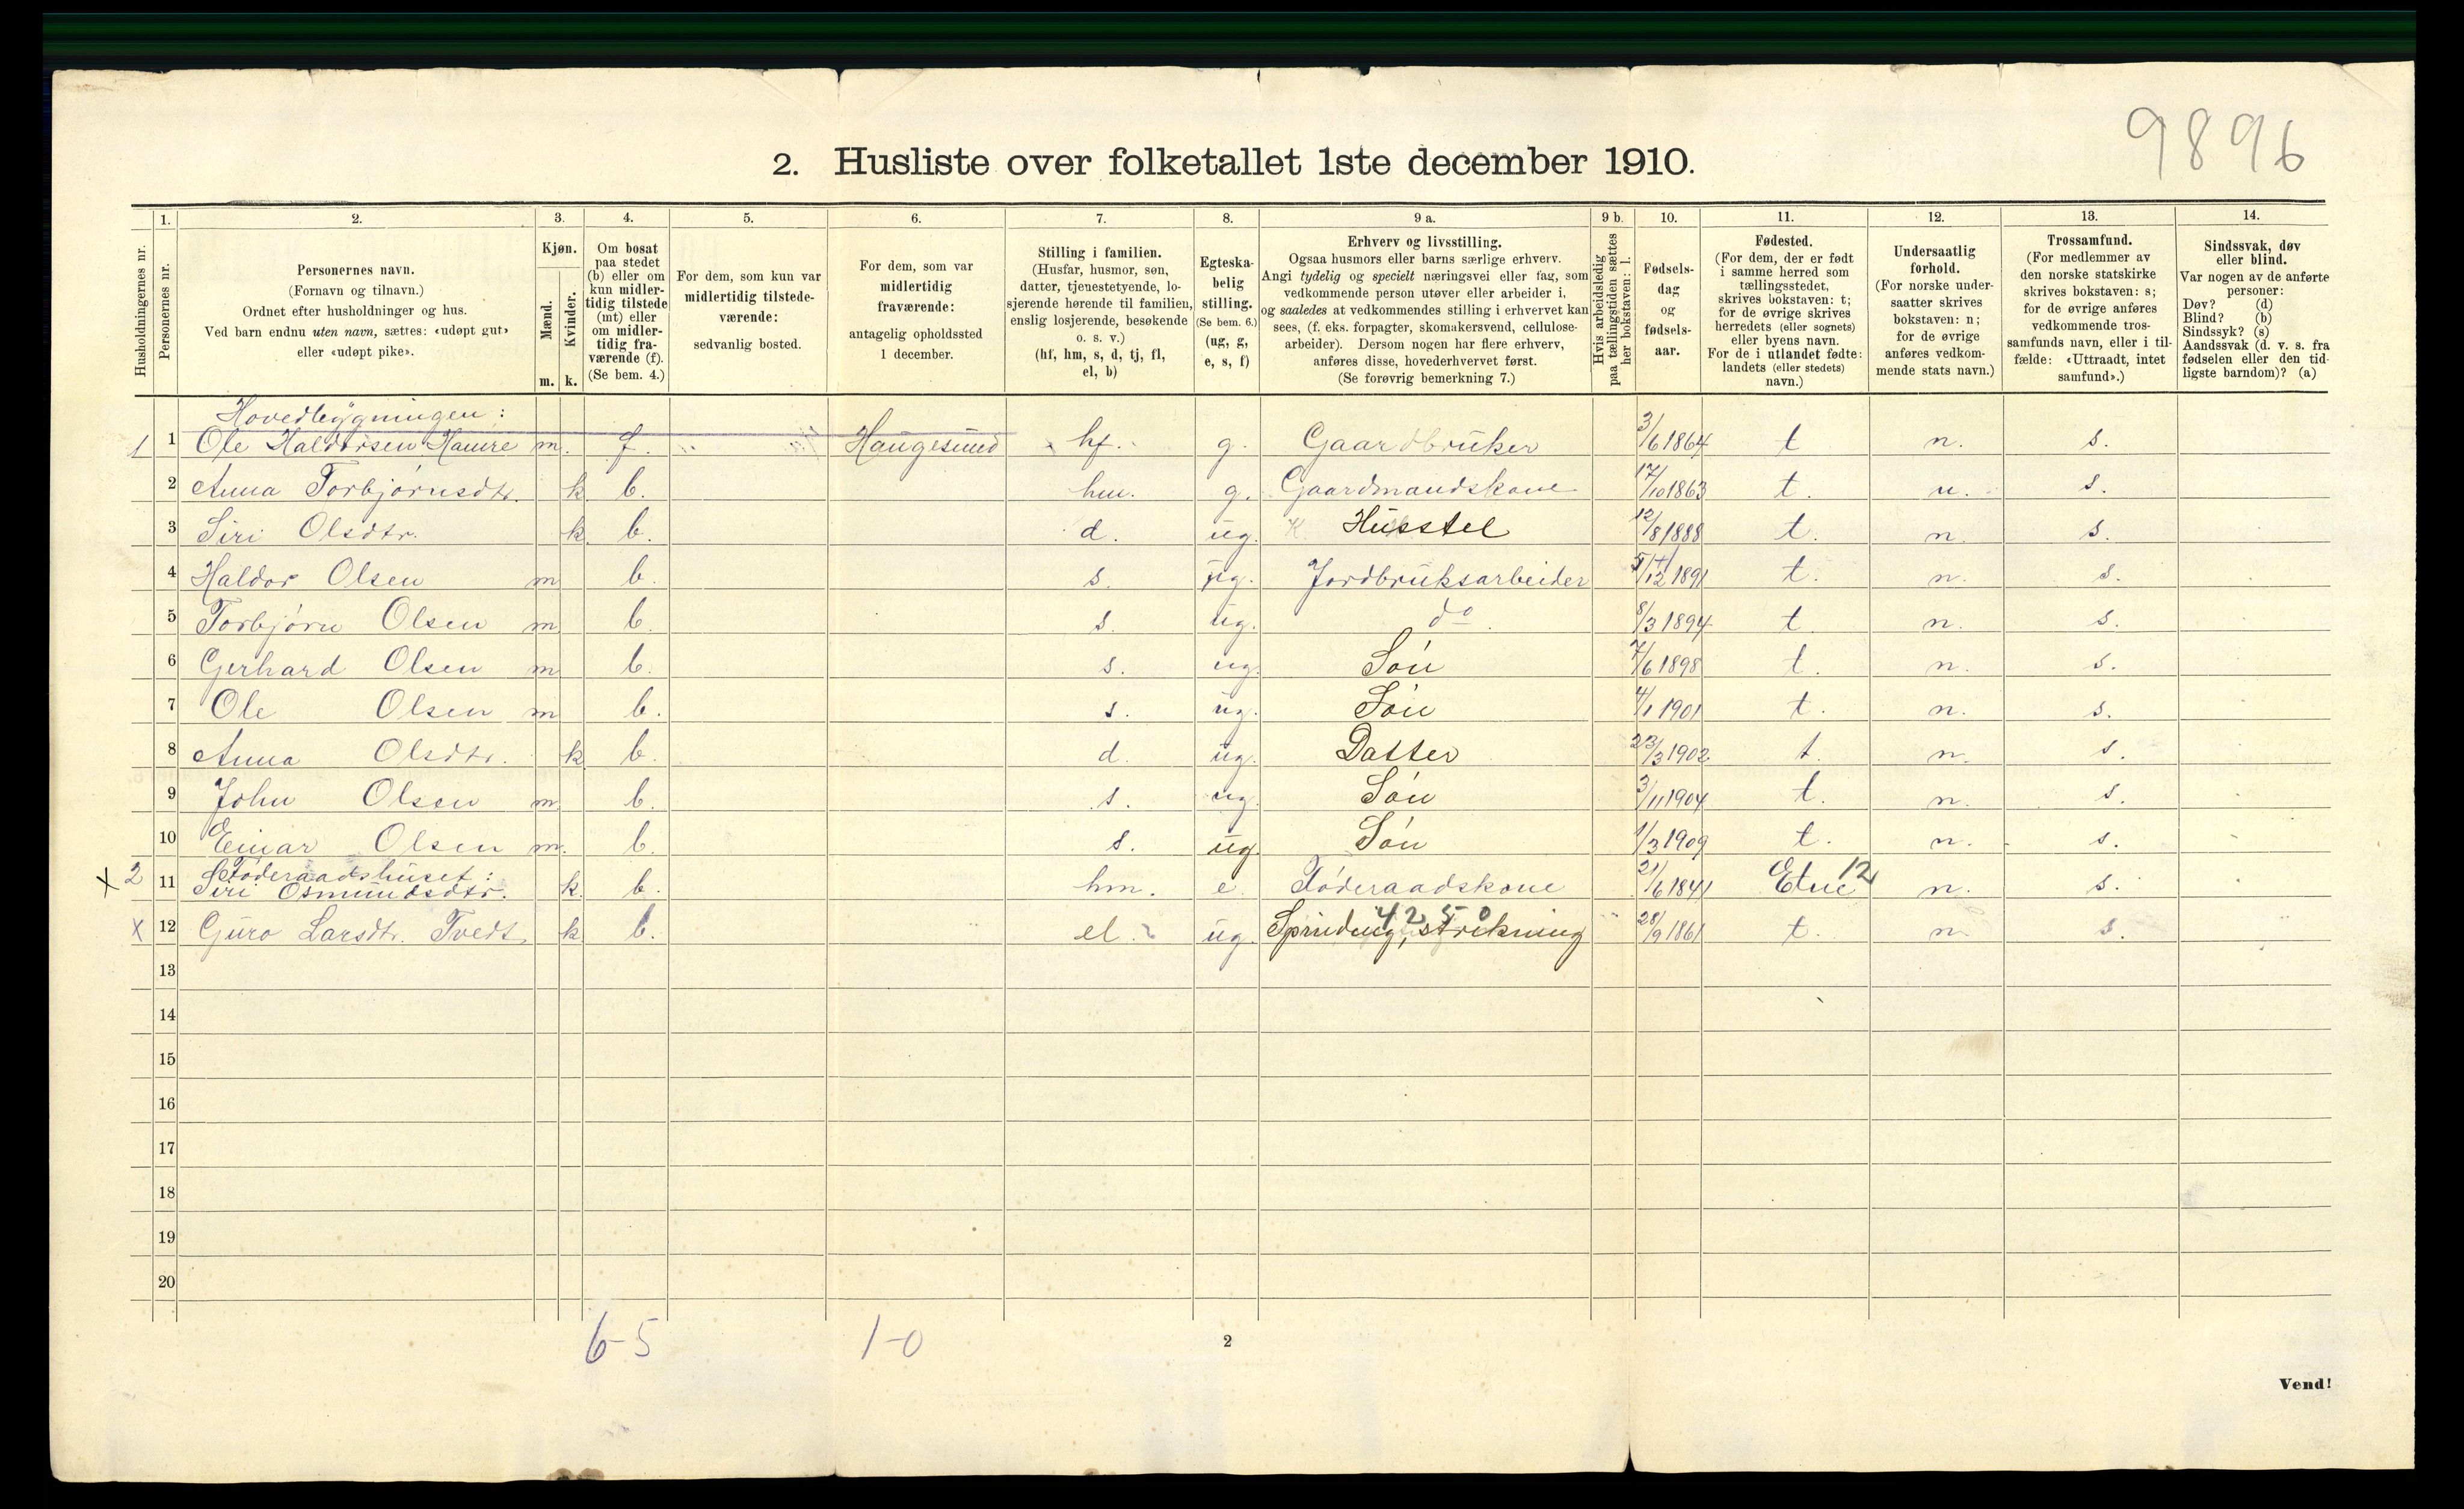 9896
2. Husliste over folketallet 1ste december 1910.
1. 2. 3. 4. 5. 6. 7. 8. 9 a. 9 b. 10. 11. 12. 13. 14.
Husholdningernes nr.
Personernes nr.
Personernes navn.
(Fornavn og tilnavn.)
Ordnet efter husholdninger og hus.
Ved barn endnu uten navn, sættes: «udøpt gut»
eller «udøpt pike».
Kjøn.
Mænd.
Kvinder.
m. k.
Om bosat
paa stedet
(b) eller om
kun midler-
tidig tilstede
(mt) eller
om midler-
tidig fra-
værende (f).
(Se bem. 4.)
For dem, som kun var
midlertidig tilstede-
værende:
sedvanlig bosted.
For dem, som var
midlertidig
fraværende:
antagelig opholdssted
1 december.
Stilling i familien.
(Husfar, husmor, søn,
datter, tjenestetyende, lo-
sjerende hørende til familien,
enslig losjerende, besøkende
o. s. v.)
(hf, hm, s, d, tj, fl,
el, b)
Egteska-
belig
stilling.
(Se bem. 6.)
(ug, g,
e, s, f)
Erhverv og livsstilling.
Ogsaa husmors eller barns særlige erhverv.
Angi tydelig og specielt næringsvei eller fag, som
vedkommende person utøver eller arbeider i,
og saaledes at vedkommendes stilling i erhvervet kan
sees, (f. eks. forpagter, skomakersvend, cellulose-
arbeider). Dersom nogen har flere erhverv,
anføres disse, hovederhvervet først.
(Se forøvrig bemerkning 7.)
Hvis arbeidsledig
paa tællingstiden sættes
her bokstaven: l.
Fødsels-
dag
og
fødsels-
aar.
Fødested.
(For dem, der er født
i samme herred som
tællingsstedet,
skrives bokstaven: t;
for de øvrige skrives
herredets (eller sognets)
eller byens navn.
For de i utlandet fødte:
landets (eller stedets)
navn.)
Undersaatlig
forhold.
(For norske under-
saatter skrives
bokstaven: n;
for de øvrige
anføres vedkom-
mende stats navn.)
Trossamfund.
(For medlemmer av
den norske statskirke
skrives bokstaven: s;
for de øvrige anføres
vedkommende tros-
samfunds navn, eller i til-
fælde: «Uttraadt, intet
samfund».)
Sindssvak, døv
eller blind.
Var nogen av de anførte
personer:
Døv? (d)
Blind? (b)
Sindssyk? (s)
Aandssvak (d. v. s. fra
fødselen eller den tid-
ligste barndom)? (a)
Hovedbygningen:
1 1 Ole Haldorsen Hamre m. f. Haugesund hf. g. Gaardbruker 3/6 1864 t n. s.
2 Anna Torbjørnsdtr. k b. hm. g. Gaardmandskone 17/10 1863 t. n. s.
3 Siri Olsdtr. k. b. d. ug. Husstel 12/8 1888 t. n. s.
4 Haldor Olsen m b. s. ug. Jordbruksarbeider 5/12 1891 t. n. s.
5 Torbjørn Olsen m b. s. ug. do. 8/3 1894 t. n. s.
6 Gerhard Olsen m b. s. ug. Søn 7/6 1898 t. n. s.
7 Ole Olsen m b. s. ug. Søn 4/1 1901 t. n. s.
8 Anna Olsdtr. k b. d. ug. Datter 23/3 1902 t. n. s.
9 John Olsen m b. s. ug. Søn 3/11 1904 t. n. s.
10 Einar Olsen m. b. s. ug. Søn 1/3 1909 t. n. s.
Føderaadshuset:
x 2 11 Siri Osmundsdtr. k. b. hm. e. Føderaadskone 21/6 1841 Etne 12 n. s.
4250
x 12 Guro Larsdtr. Tvedt k b. el. ug. Spinding, strikning 28/9 1861 t. n s.
13
14
15
16
17
18
19
20
6-5 1-0
2
Vend!